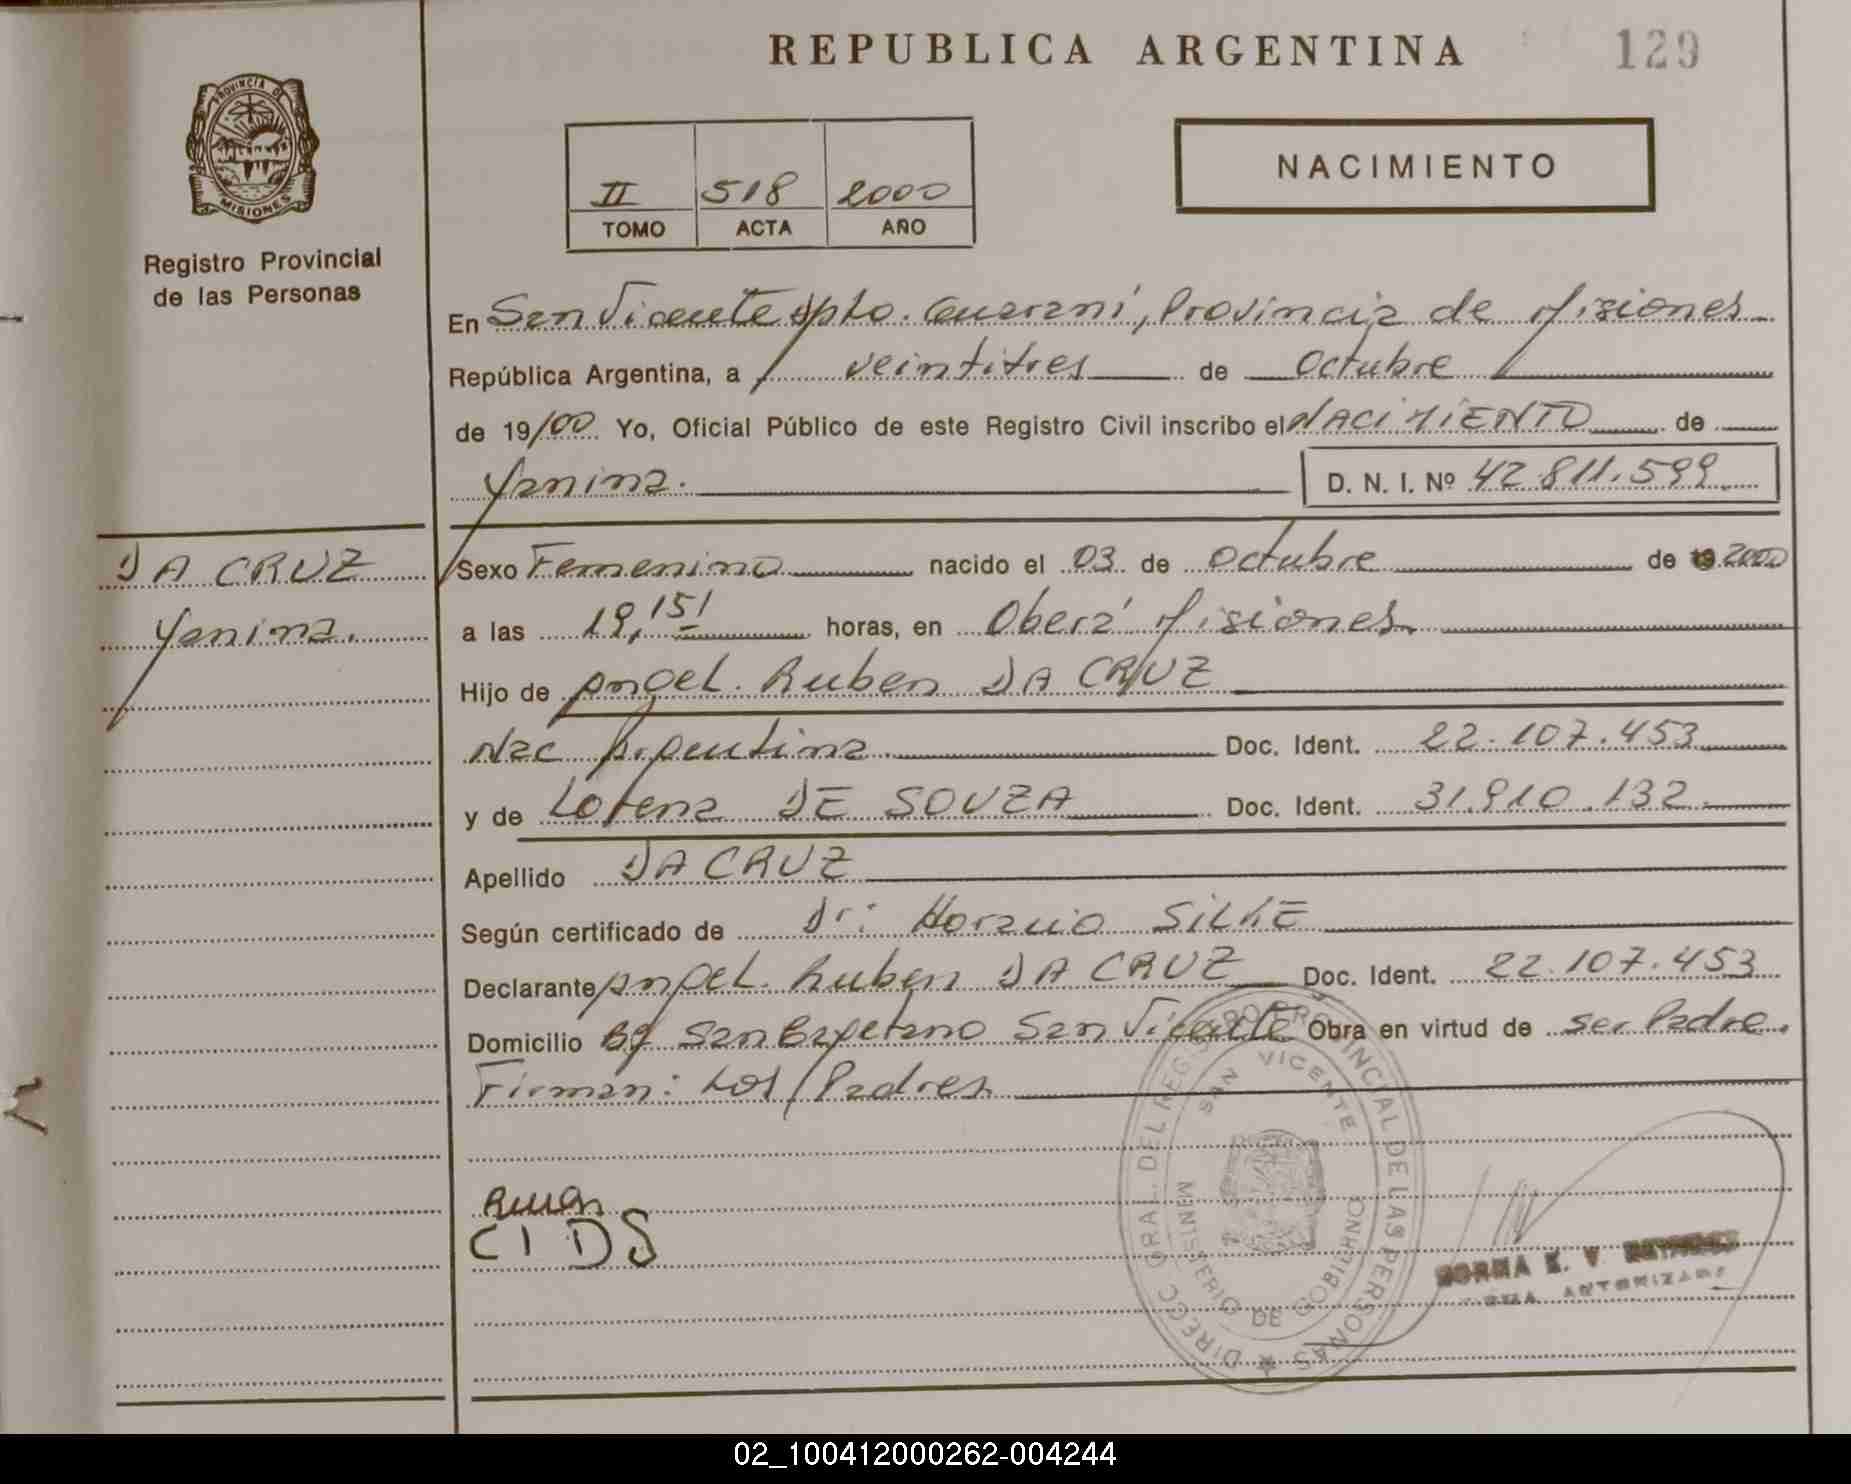 REPUBLICA ARGENTINA
129
PROVINCIA DE
MISIONES
Registro Provincial
de las Personas
II 518 2000
TOMO ACTA AÑO
NACIMIENTO
En San Vicente Dpto. Guaraní, Provincia de Misiones
República Argentina, a veintitres de Octubre
de 19/00 Yo, Oficial Público de este Registro Civil inscribo el NACIMIENTO de
Yanina. D. N. I. Nº 42.811.599
DA CRUZ
Yanina.
Sexo Femenino nacido el 03 de Octubre de 2000
a las 19,15 horas, en Oberá Misiones.
Hijo de Angel. Ruben DA CRUZ
Nac Argentina Doc. Ident. 22.107.453
y de Lorena DE SOUZA Doc. Ident. 31.910.132
Apellido DA CRUZ
Según certificado de Dr: Horacio SILKE
Declarante Angel. Ruben DA CRUZ Doc. Ident. 22.107.453
Domicilio Bº San Cayetano San Vicente Obra en virtud de ser Padre.
Firman: Los Padres
C I D S
DIRECC GRAL. DEL REGISTRO PROVINCIAL DE LAS PERSONAS
SAN VICENTE
MINISTERIO DE GOBIERNO
NORMA E. V.
AUTORIZADA
02_100412000262-004244